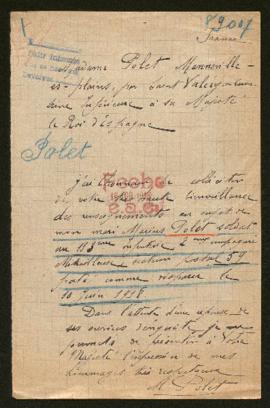 89007
France
Madame Polet Manneville-
es-plains, par Saint Valery en Caux
Seine Inférieure à sa Majesté
le Roi d'espagne
Polet
j'ai l'honneur de solliciter
de votre bienveillance
des renseignements au sujet de
mon mari Marius Polet soldat
au 113ème infanterie 2ème compagnie
Mitrailleuse, secteur postal 59
porté comme disparu le
10 juin 1918
Dans l'attente d'une réponse de
ses services d'enquête, je me
permets de présenter à votre
Majesté l'expression de mes
hommages très respectueux
M. Polet
Fecha